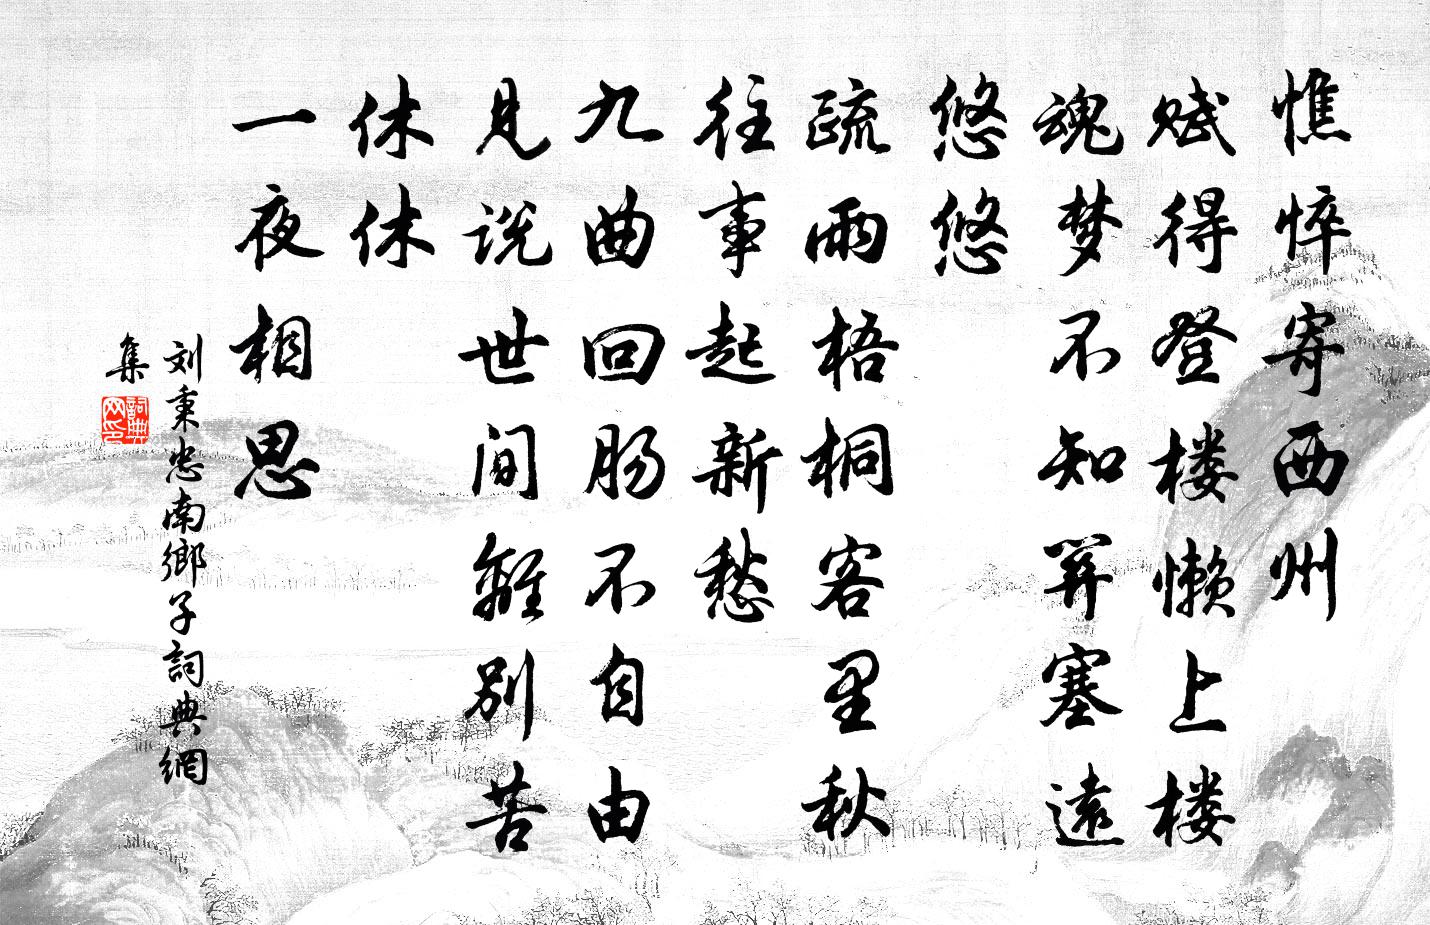 憔悴寄西州
赋得登楼懒上楼
魂梦不知関塞遠
悠悠
疏雨梧桐客里秋
往事起新愁
九曲回肠不自由
見说世间離别苦
休休
一夜相思
刘秉忠南鄉子詞典網
集
詞典
网印